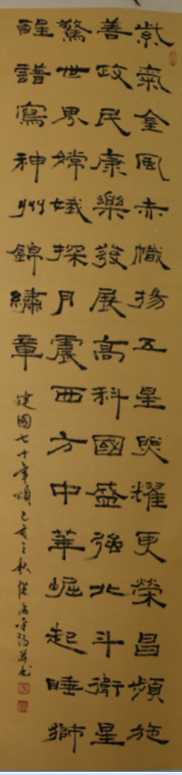 紫氣金風赤幟揚五星照耀更榮昌頻施
善政民康樂發展高科國盛強北斗衛星
驚世界嫦娥探月震西方中華崛起睡獅
醒譜寫神州錦繡章
建國七十年頌己亥之秋